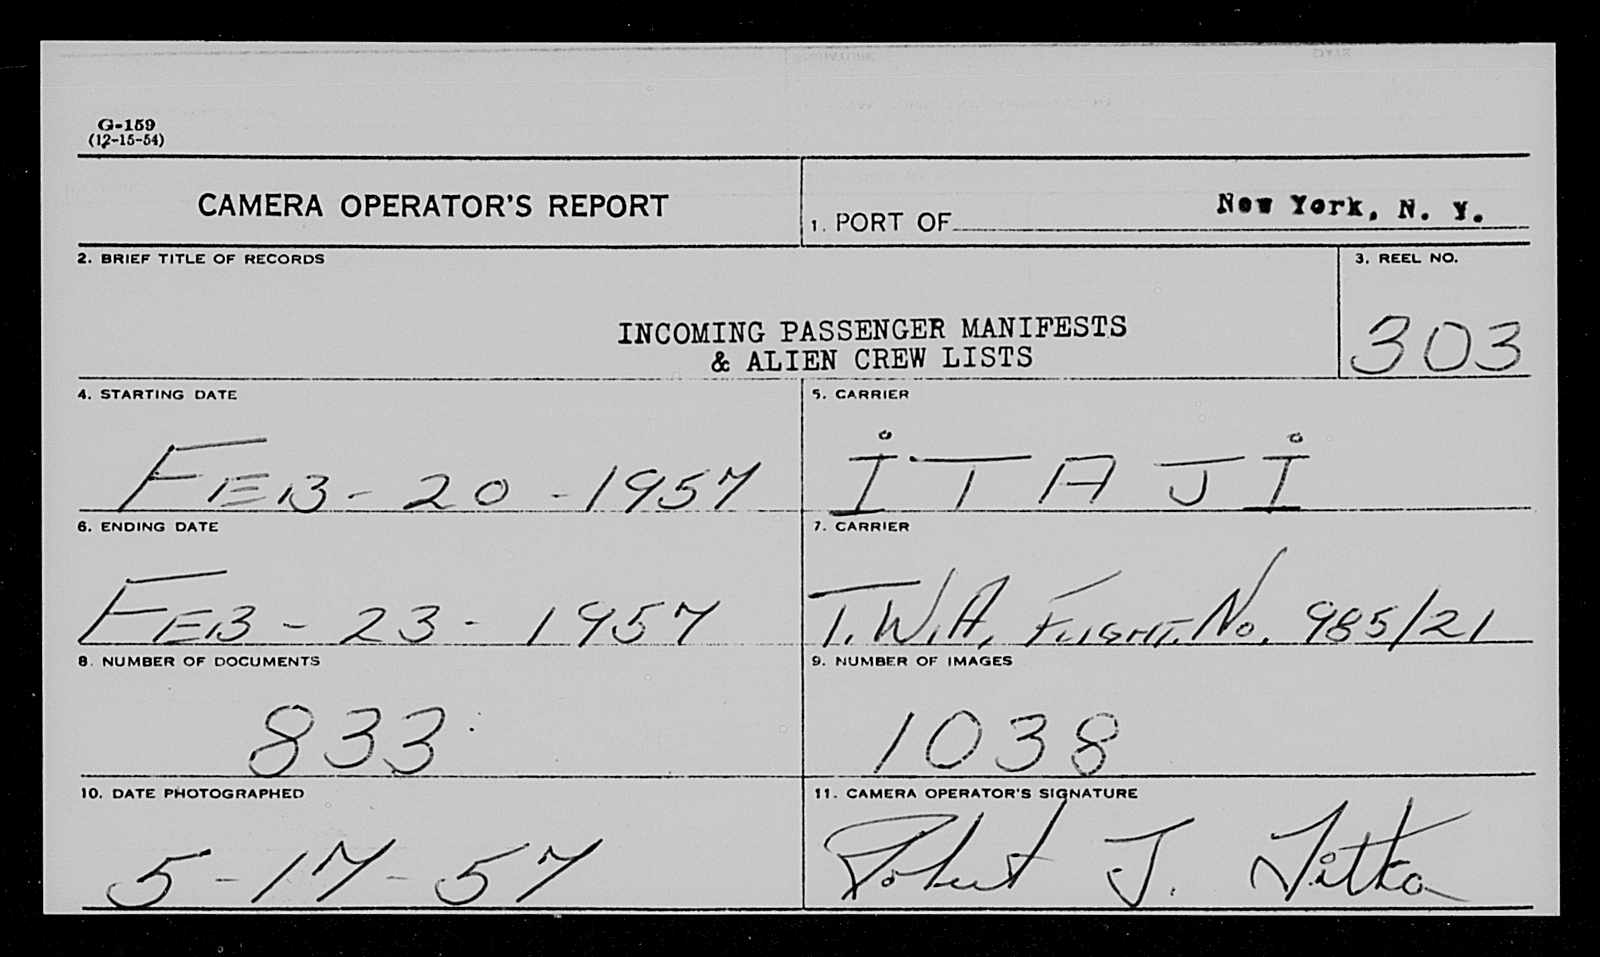 G-159
(12-15-54)
CAMERA OPERATOR'S REPORT
1. PORT OF New York, N. Y.
2. BRIEF TITLE OF RECORDS
INCOMING PASSENGER MANIFESTS
& ALIEN CREW LISTS
3. REEL NO.
303
4. STARTING DATE
FEB - 20 - 1957
5. CARRIER
ITAJI
6. ENDING DATE
FEB - 23 - 1957
7. CARRIER
T.W.A. FLIGHT. No. 985/21
8. NUMBER OF DOCUMENTS
833
9. NUMBER OF IMAGES
1038
10. DATE PHOTOGRAPHED
5-17-57
11. CAMERA OPERATOR'S SIGNATURE
Robert J.